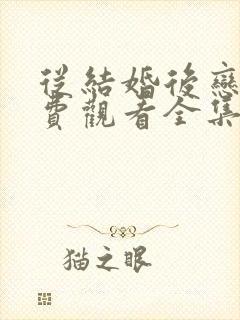 從結婚後戀
費觀看全集
猫之眼